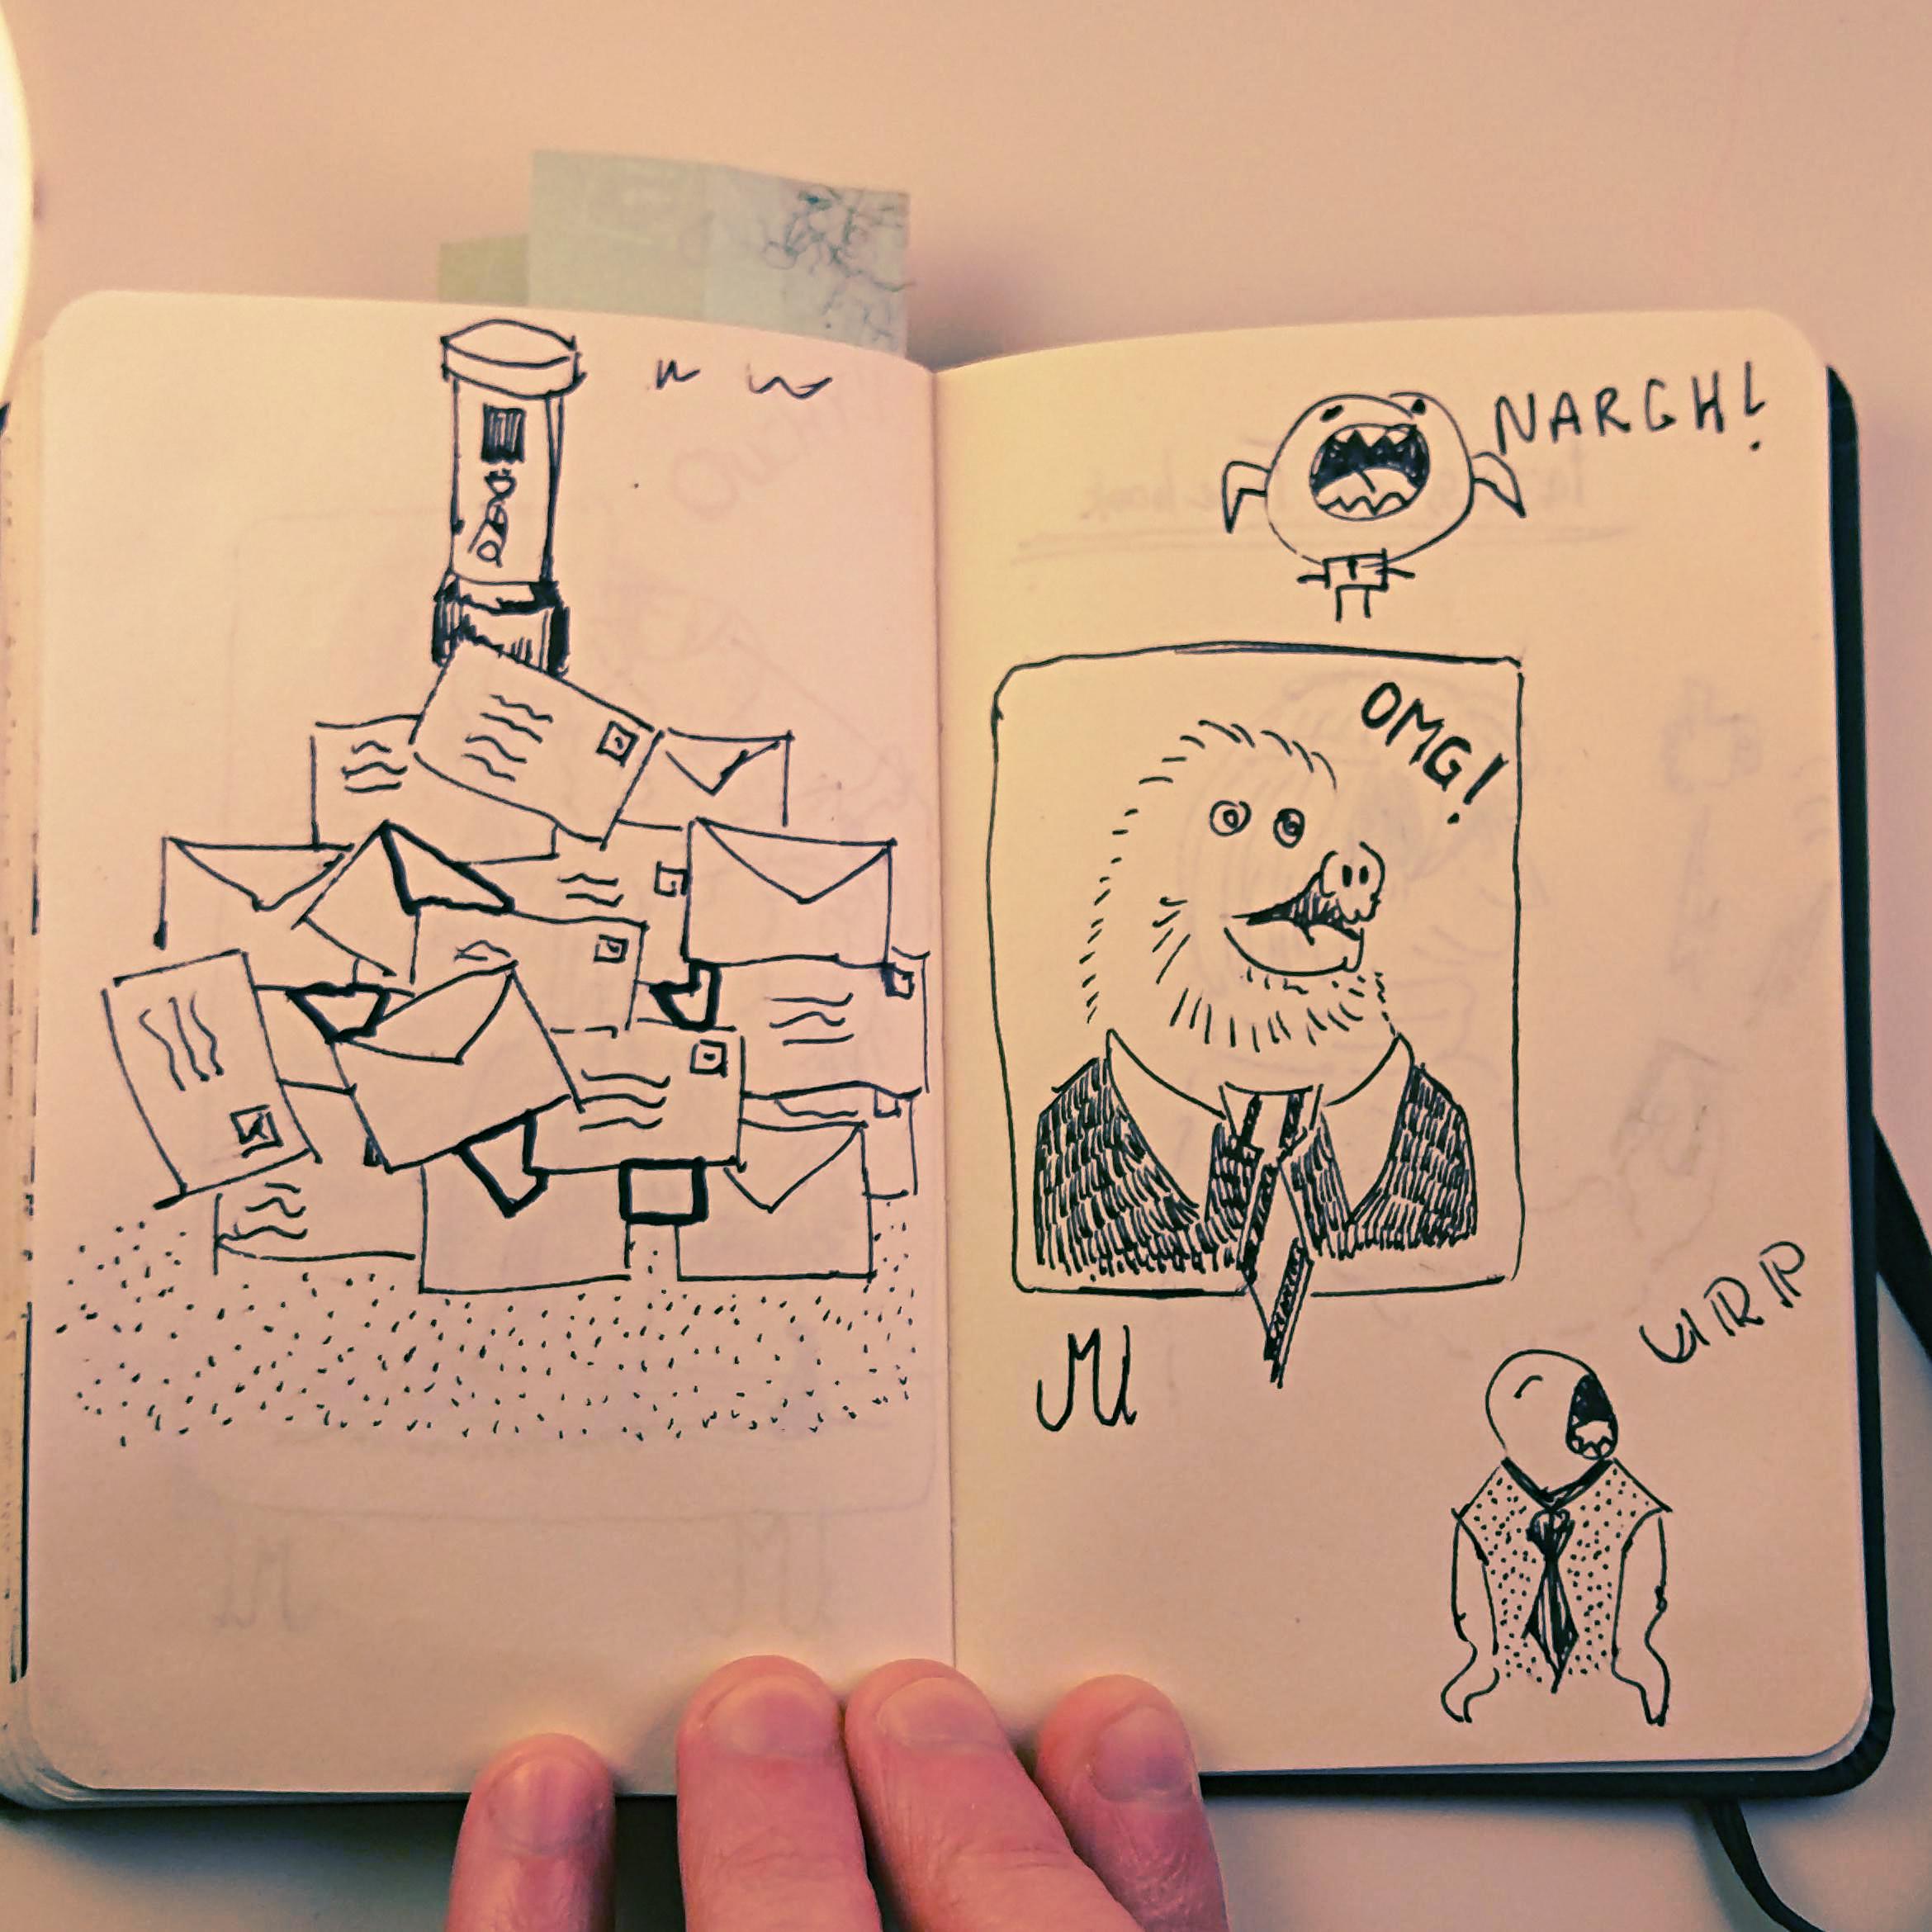 NARGH!
OMG!
MU
URP